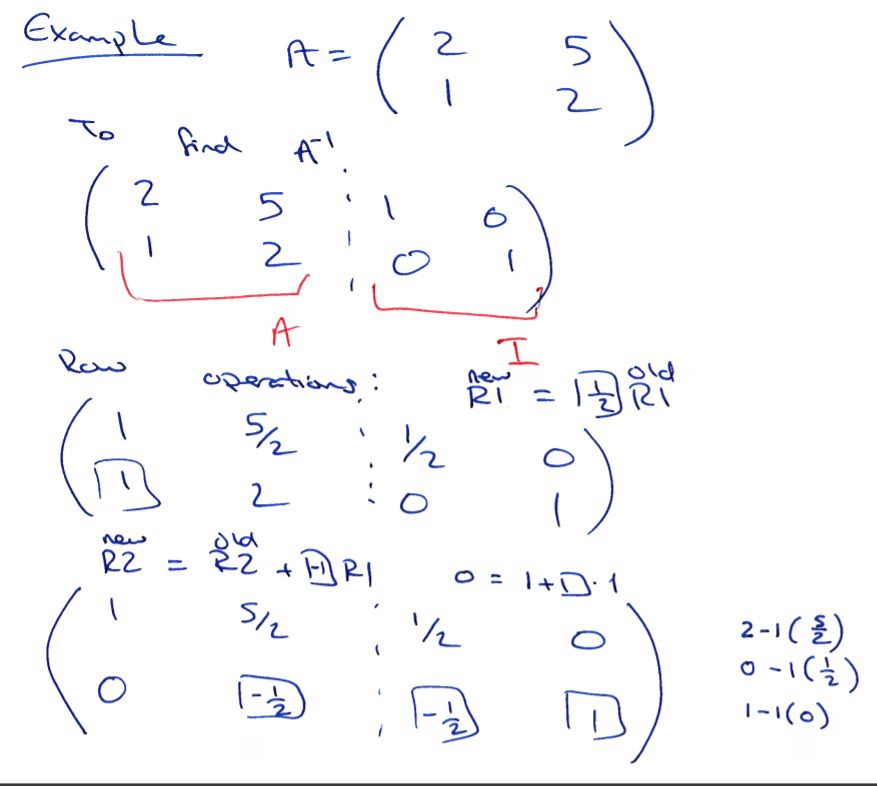 Example A = ( 2 5
1 2 )
To find A⁻¹
( 2 5 ⋮ 1 0
1 2 ⋮ 0 1 )
A I
Row operations: new R1 = [1/2] old R1
( 1 5/2 ⋮ 1/2 0
[1] 2 ⋮ 0 1 )
new R2 = old R2 + [-1] R1 0 = 1 + □·1
( 1 5/2 ⋮ 1/2 0
0 [-1/2] ⋮ [-1/2] [1] )
2 - 1(5/2)
0 - 1(1/2)
1 - 1(0)